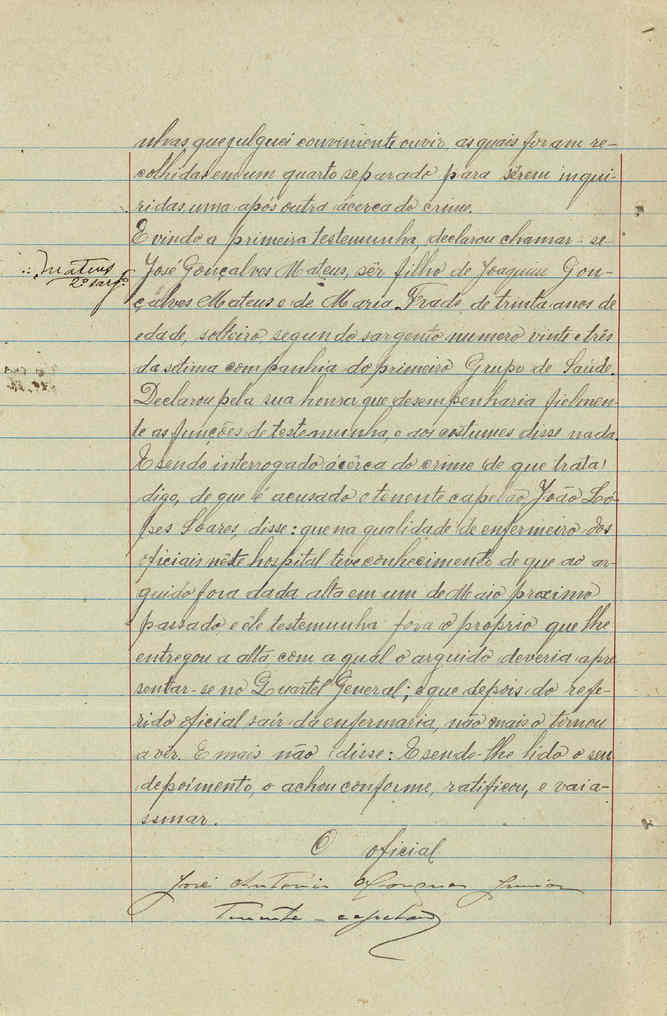 nhas que julguei conviniente ouvir, as quais foram re-
colhidas em um quarto separado para sêrem inqui-
ridas uma após outra ácerca do crime.
E vindo a primeira testemunha, declarou chamar-se
Mateus
2º sargº
José Gonçalves Mateus, sêr filho de Joaquim Gon-
çalves Mateus e de Maria Frade, de trinta anos de
edade, solteiro, segundo sargento numero vinte e três
da setima companhia do primeiro Grupo de Saúde.
Declarou pela sua honra que desempenharia fielmen-
te as funções de testemunha, e aos costumes disse nada.
E sendo interrogado ácêrca do crime (de que trata)
digo, de que é acusado o tenente capelão João Lo-
pes Soares, disse: que na qualidade de enfermeiro dos
oficiais nêste hospital teve conhecimento de que ao ar-
guido fora dada alta em um de Maio proximo
passado e êle testemunha fôra o proprio que lhe
entregou a alta com a qual o arguido deveria apre
sentar-se no Quartel General; e que depois do refe-
rido oficial saír da enfermaria, não mais o tornou
a vêr. E mais não disse: E sendo-lhe lido o seu
depoimento, o achou conforme, ratificou, e vai a-
ssinar.
O oficial
José António Junior
Tenente - capelão